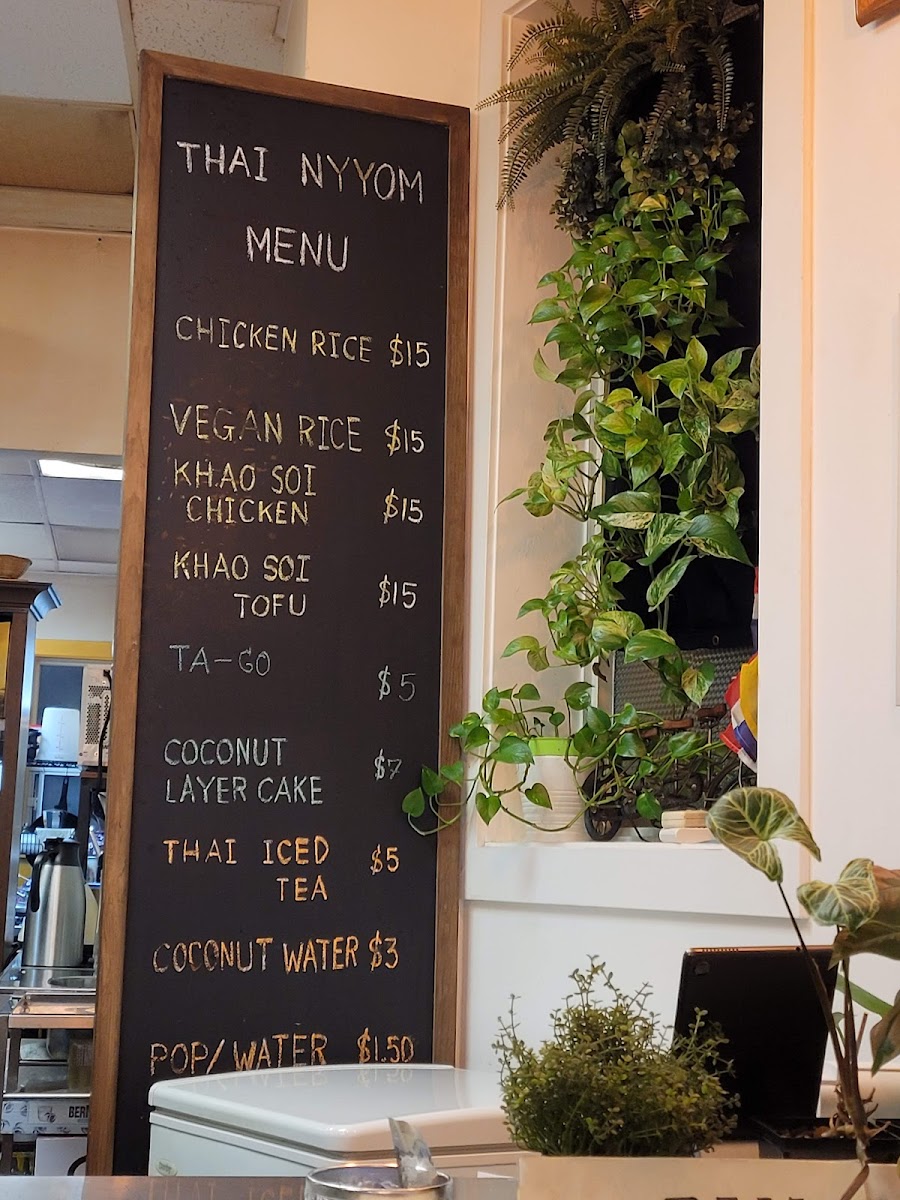 THAI NYYOM
MENU
CHICKEN RICE $15
VEGAN RICE $15
KHAO SOI
CHICKEN $15
KHAO SOI
TOFU $15
TA-GO $5
COCONUT
LAYER CAKE $7
THAI ICED
TEA $5
COCONUT WATER $3
POP/WATER $1.50